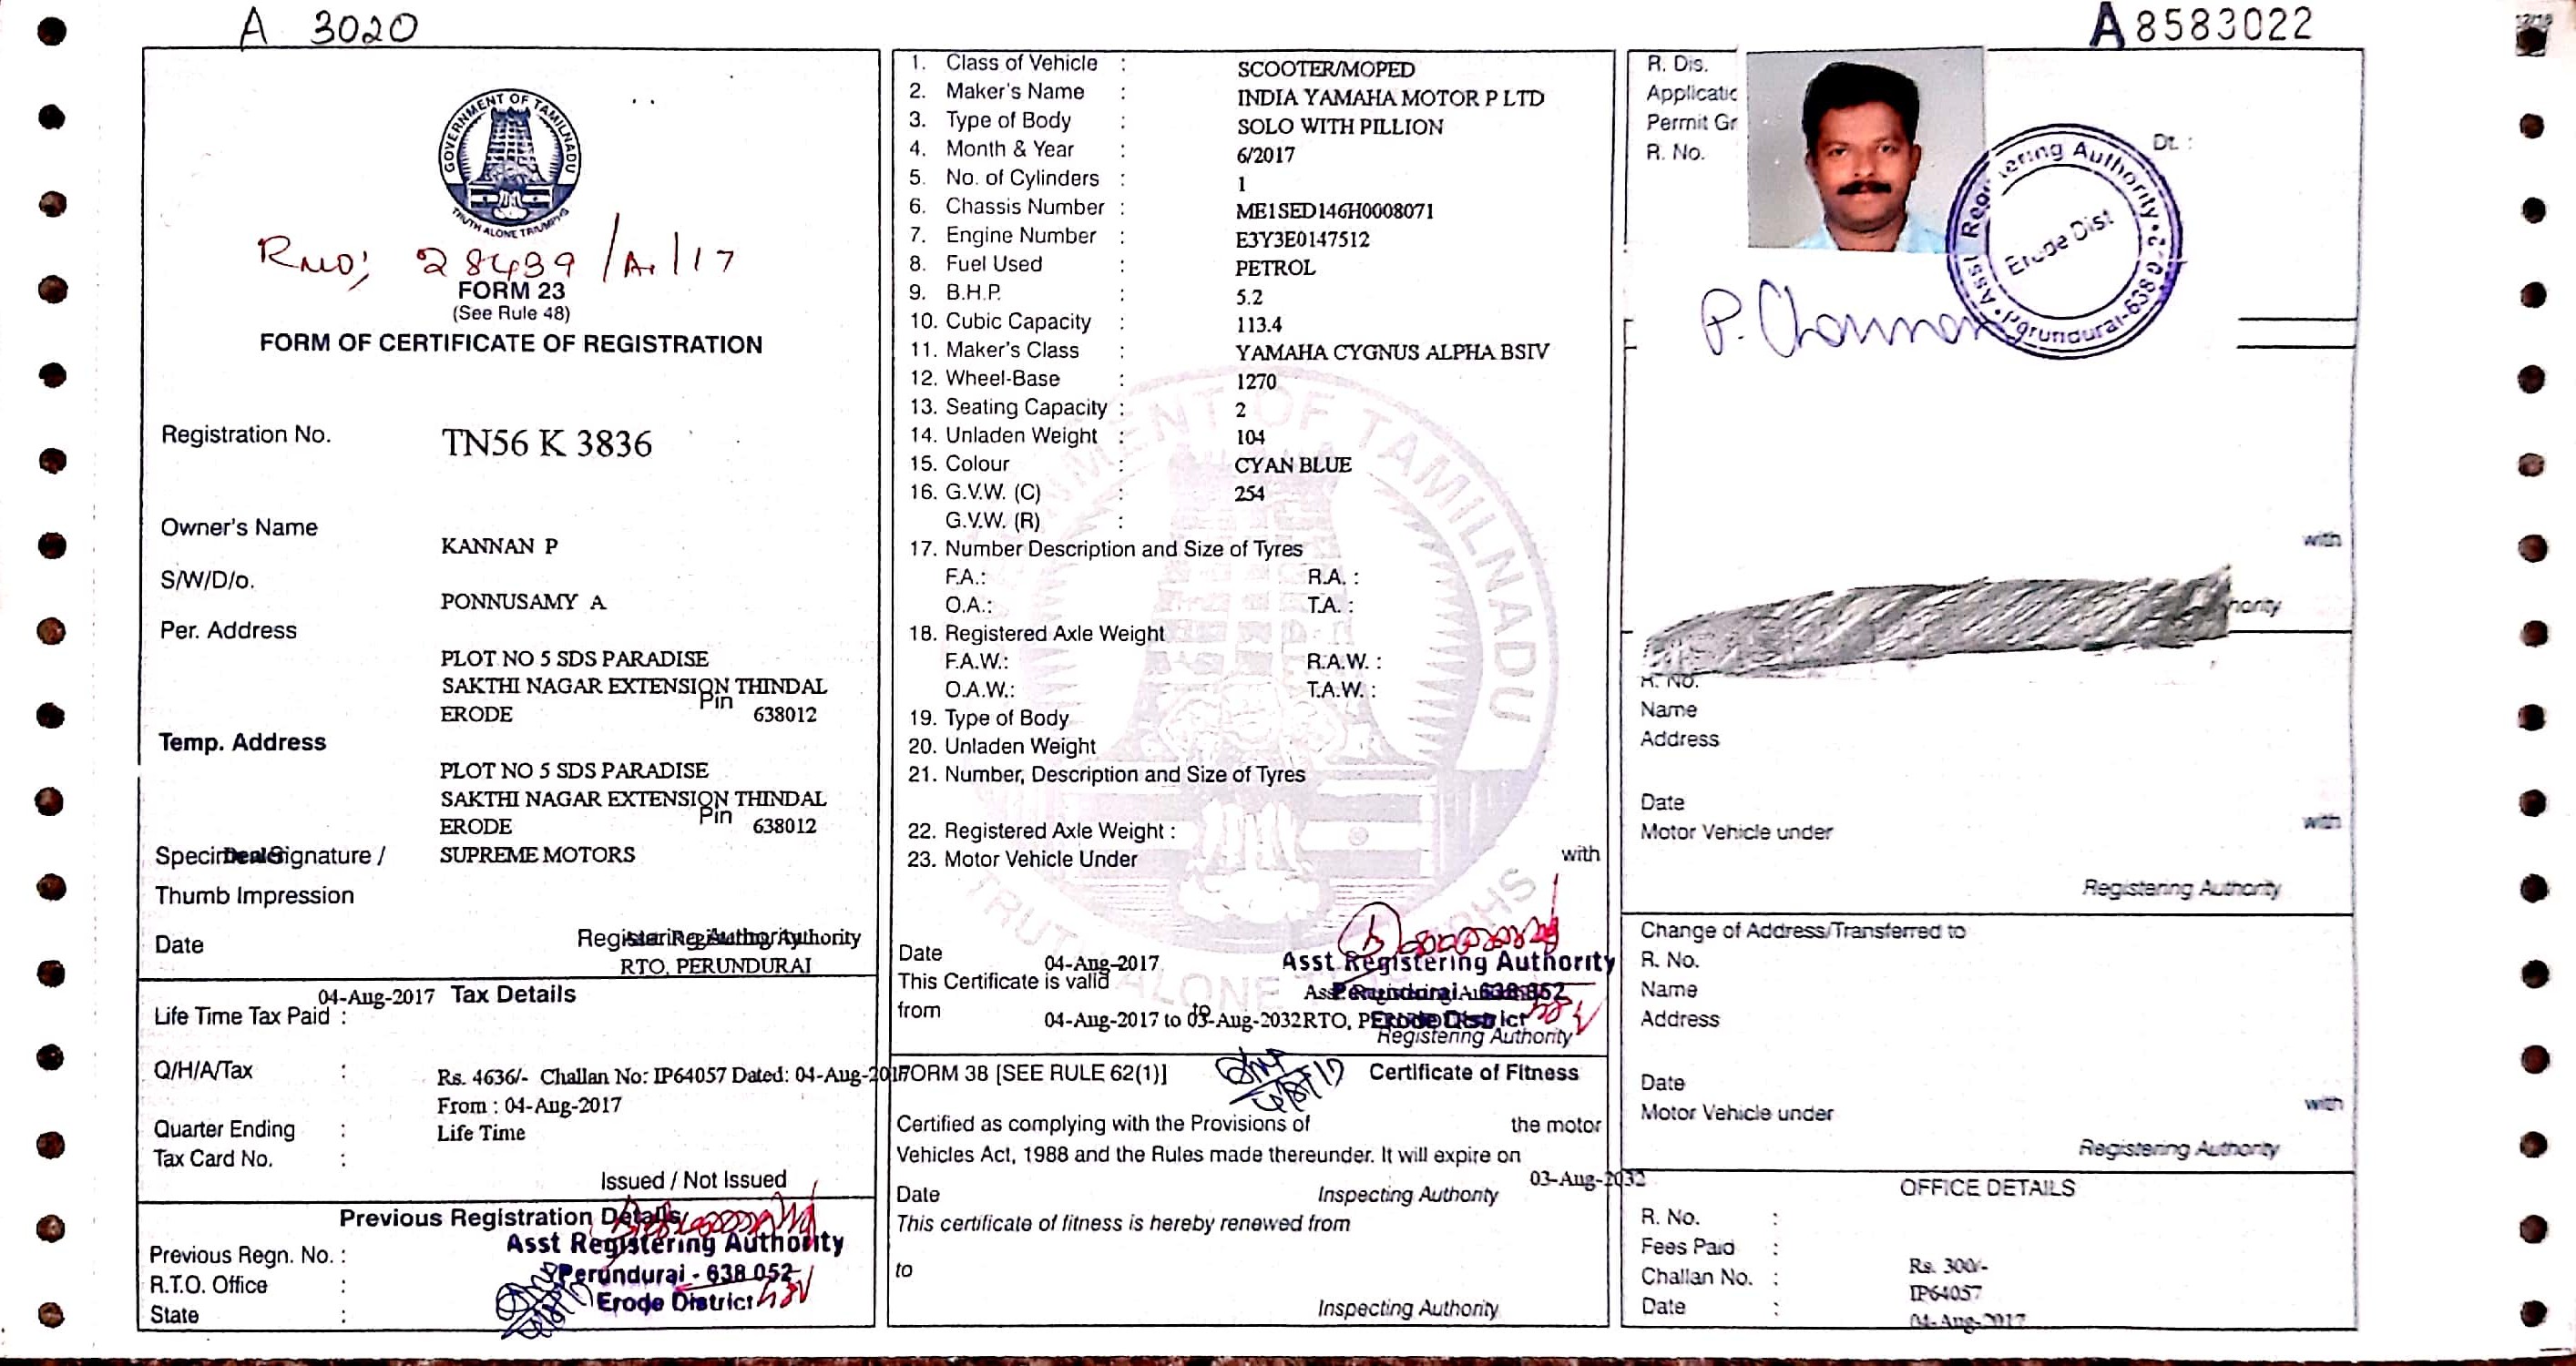 A 3020
A 8583022
GOVERNMENT OF TAMILNADU
TRUTH ALONE TRIUMPHS
R.No; 28439/A1/17
FORM 23
(See Rule 48)
FORM OF CERTIFICATE OF REGISTRATION
Registration No. TN56 K 3836
Owner's Name
KANNAN P
S/W/D/o.
PONNUSAMY A
Per. Address
PLOT NO 5 SDS PARADISE
SAKTHI NAGAR EXTENSION THINDAL
ERODE Pin 638012
Temp. Address
PLOT NO 5 SDS PARADISE
SAKTHI NAGAR EXTENSION THINDAL
ERODE Pin 638012
Specimen Signature / SUPREME MOTORS
Dealer
Thumb Impression
Date Registering Authority
RTO, PERUNDURAI
04-Aug-2017 Tax Details
Life Time Tax Paid :
Q/H/A/Tax : Rs. 4636/- Challan No: IP64057 Dated: 04-Aug-2017
From : 04-Aug-2017
Quarter Ending : Life Time
Tax Card No. :
Issued / Not Issued
Previous Registration Details
Asst Registering Authority
Previous Regn. No. :
Perundurai - 638 052
R.T.O. Office :
Erode District
State :
1. Class of Vehicle : SCOOTER/MOPED
2. Maker's Name : INDIA YAMAHA MOTOR P LTD
3. Type of Body : SOLO WITH PILLION
4. Month & Year : 6/2017
5. No. of Cylinders : 1
6. Chassis Number : ME1SED146H0008071
7. Engine Number : E3Y3E0147512
8. Fuel Used : PETROL
9. B.H.P. : 5.2
10. Cubic Capacity : 113.4
11. Maker's Class : YAMAHA CYGNUS ALPHA BSIV
12. Wheel-Base : 1270
13. Seating Capacity : 2
14. Unladen Weight : 104
15. Colour : CYAN BLUE
16. G.V.W. (C) : 254
G.V.W. (R) :
17. Number Description and Size of Tyres
F.A.: R.A. :
O.A.: T.A. :
18. Registered Axle Weight
F.A.W.: R.A.W. :
O.A.W.: T.A.W. :
19. Type of Body
20. Unladen Weight
21. Number, Description and Size of Tyres
22. Registered Axle Weight :
23. Motor Vehicle Under with
Date 04-Aug-2017
Asst Registering Authority
This Certificate is valid
Perundurai - 638 052
from 04-Aug-2017 to 03-Aug-2032 RTO,
Erode District
Registering Authority
FORM 38 [SEE RULE 62(1)] Certificate of Fitness
Certified as complying with the Provisions of the motor
Vehicles Act, 1988 and the Rules made thereunder. It will expire on
03-Aug-2032
Date Inspecting Authority
This certificate of fitness is hereby renewed from
to
Inspecting Authority
GOVERNMENT OF TAMILNADU
TRUTH ALONE TRIUMPHS
R. Dis.
Permit Gr
R. No.
Dt. :
Asst Registering Authority
Perundurai-638 052
Erode Dist
with
R. No.
Name
Address
Date
Motor Vehicle under with
Registering Authority
Change of Address/Transferred to
R. No.
Name
Address
Date
Motor Vehicle under with
Registering Authority
OFFICE DETAILS
R. No. :
Fees Paid : Rs. 300/-
Challan No. : IP64057
Date : 04-Aug-2017